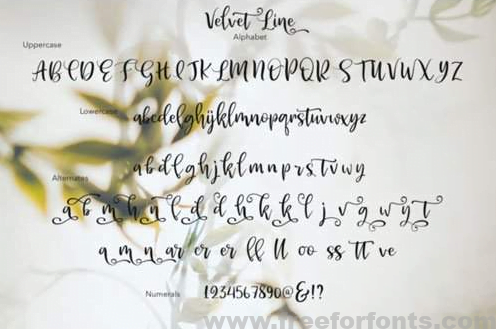 Velvet Line
Alphabet
Uppercase
ABCDEFGHIJKLMNOPQRSTUVWXYZ
Lowercase
abcdefghijklmnopqrstuvwxyz
Alternates
abdlghjklmnprstvwy
q m n ar er er ff ll oo ss tt ve
Numerals
1234567890@&!?
www.freeforfonts.com